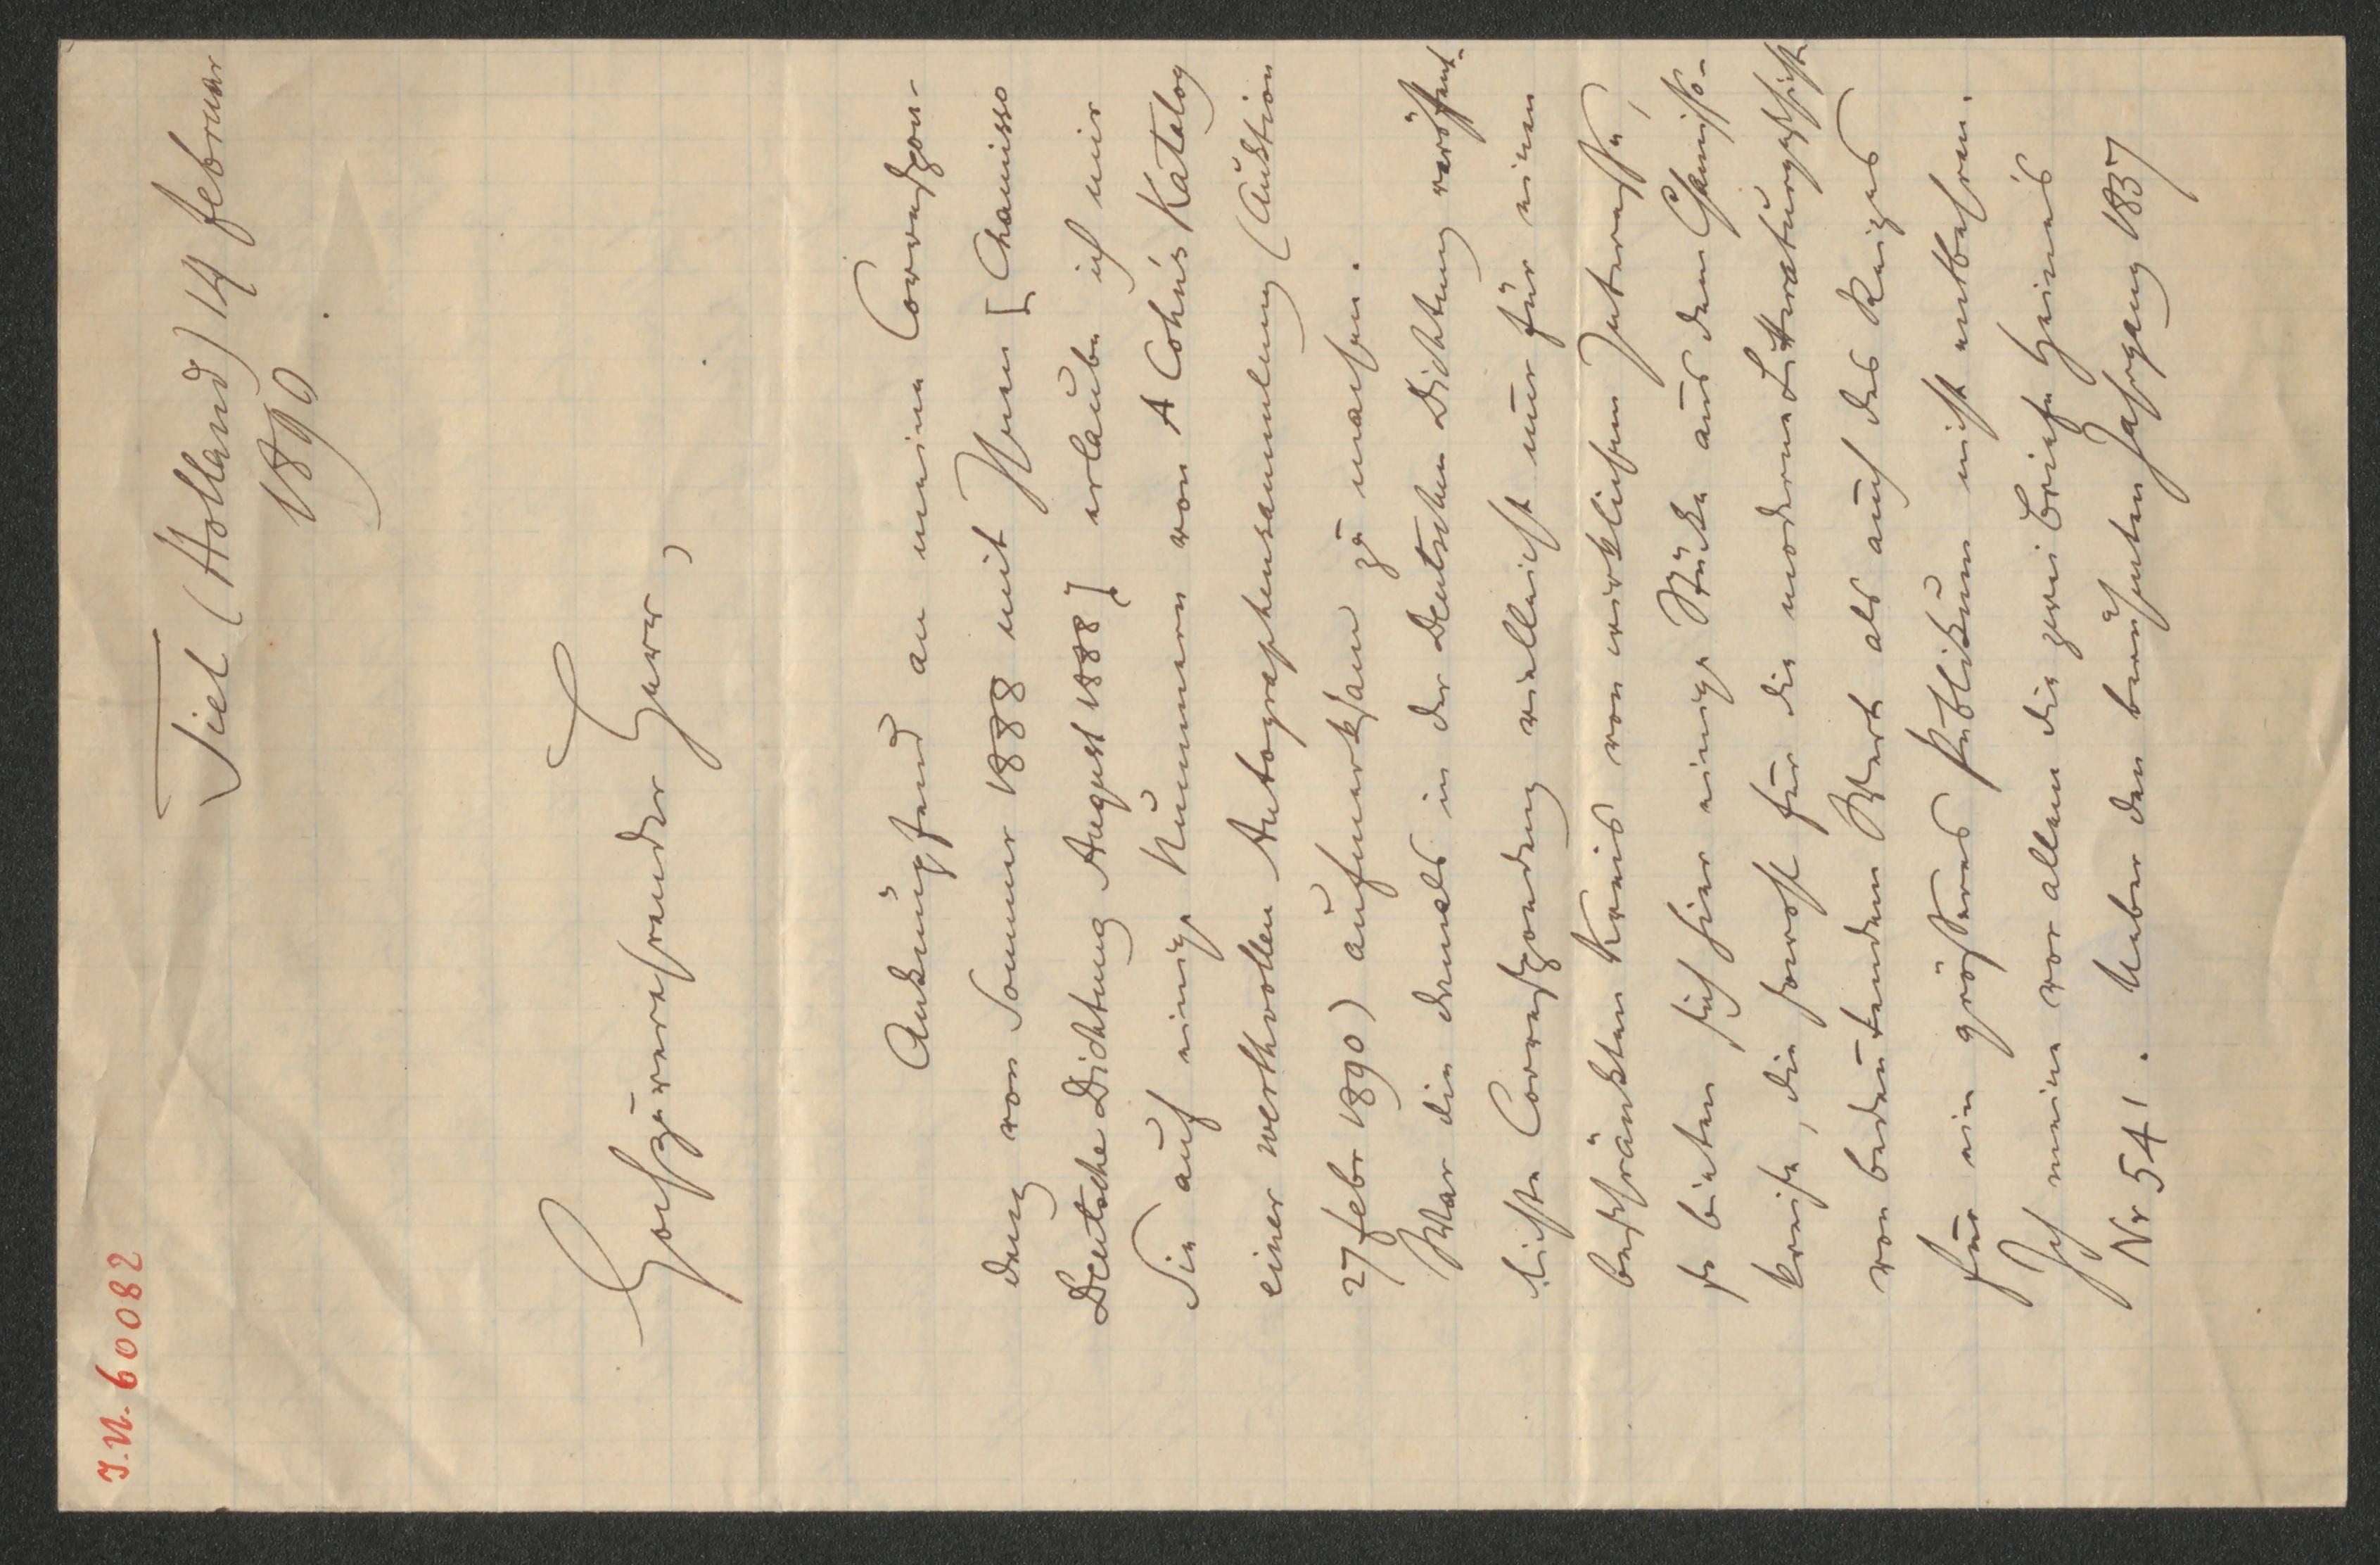 J.N. 60082
Tiel (Holland) 14 februar
1890.
Hochzuverehrender Herr,
Anknüpfend an meine Correspon-
denz von Sommer 1888 mit Ihnen [Chamisso
Deutsche Dichtung August 1888] erlaube ich mir
Sie auf einige Nummern von A Cohn's Katalog
einer werthvollen Autographensammlung (Auktion
27 febr 1890) aufmerksam zu machen.
War die damals in der Deutschen Dichtung veröffent-
lichte Correspondenz vielleicht nur für einen
beschränkten Kreis von wirklichem Interesse,
so bieten sich hier einige Stücke aus dem Chamisso-
kreise, die sowohl für die moderne Litteraturgeschichte
von bedeutendem Wert als auch des Reizes
für ein grösseres Publikum nicht entbehren.
Ich meine vor allem die zwei Briefe Heine's
Nr 541. Ueber den Jahrgang 1837